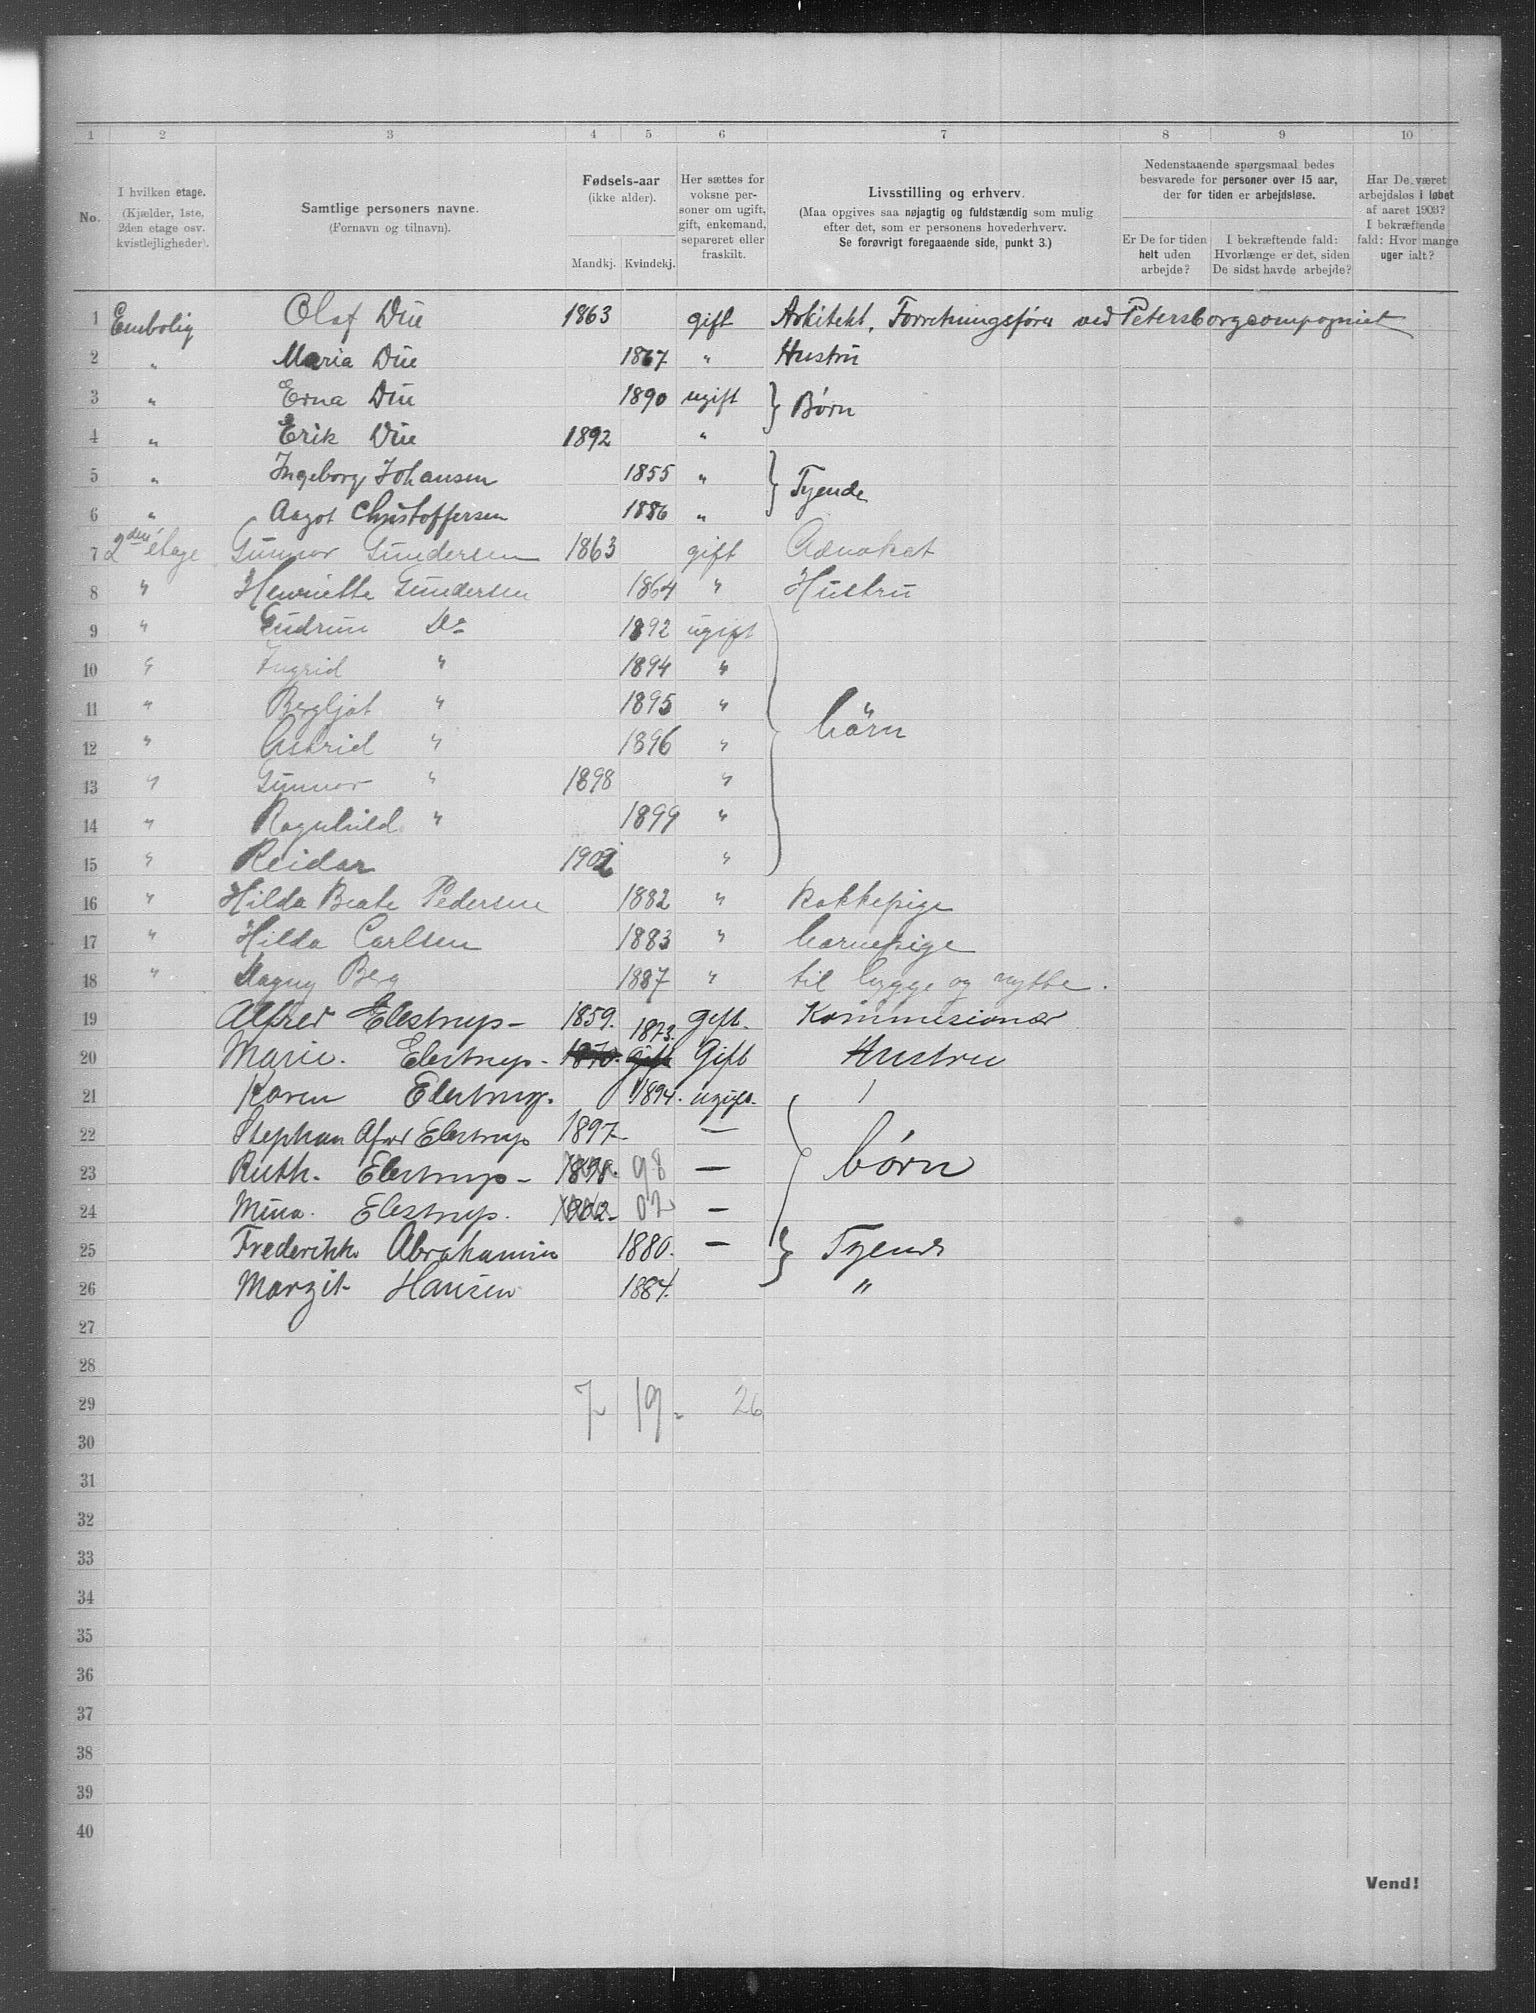 1 2 3 4 5 6 7 8 9 10
No.
I hvilken etage.
(Kjælder, 1ste,
2den etage osv.
kvistlejligheder).
Samtlige personers navne.
(Fornavn og tilnavn).
Fødsels-aar
(ikke alder).
Mandkj. Kvindekj.
Her sættes for
voksne per-
soner om ugift,
gift, enkemand,
separeret eller
fraskilt.
Livsstilling og erhverv.
(Maa opgives saa nøjagtig og fuldstændig som mulig
efter det, som er personens hovederhverv.
Se forøvrigt foregaaende side, punkt 3.)
Nedenstaaende spørgsmaal bedes
besvarede for personer over 15 aar,
der for tiden er arbejdsløse.
Er De for tiden
helt uden
arbejde?
I bekræftende fald:
Hvorlænge er det, siden
De sidst havde arbejde?
Har De været
arbejdsløs i løbet
af aaret 1903?
I bekræftende
fald: Hvor mange
uger ialt?
1 Enebolig Olaf Due 1863 gift Arkitekt, Forretningsfører ved Petersborgcompagniet
2 " Maria Due 1867 " Hustru
3 " Erna Due 1890 ugift } Børn
4 " Erik Due 1892 "
5 " Ingeborg Johansen 1855 " } Tyende
6 " Aagot Christoffersen 1886 "
7 2den etage Gunnar Gundersen 1863 gift Advokat
8 " Henriette Gundersen 1864 " Hustru
9 " Gudrun Do 1892 ugift
10 " Ingrid " 1894 "
11 " Bergljot " 1895 " } börn
12 " Astrid " 1896 "
13 " Gunnar " 1898 "
14 " Ragnhild " 1899 "
15 " Reidar 1902 "
16 " Hilda Beate Pedersen 1882 " Kokkepige
17 " Hilda Carlsen 1883 " barnepige
18 " Magny Berg 1887 " til hygge og nytte.
19 Alfred Elestrup- 1859. Gift. Kommisionær
20 Marie. Elestrup- 1870. gift 1873. Gift Hustru
21 Karen Elestrup. 1894. ugift.
22 Stephan Elestrup 1897- —
23 Ruth. Elestrup- 1898. 98 — } børn
24 Mina. Elestrup. 1902- 02 —
25 Frederikke Abrahamsen 1880. — } Tyende
26 Margit Hansen 1884. "
27
28
29 7 19. 26
30
31
32
33
34
35
36
37
38
39
40
Vend!